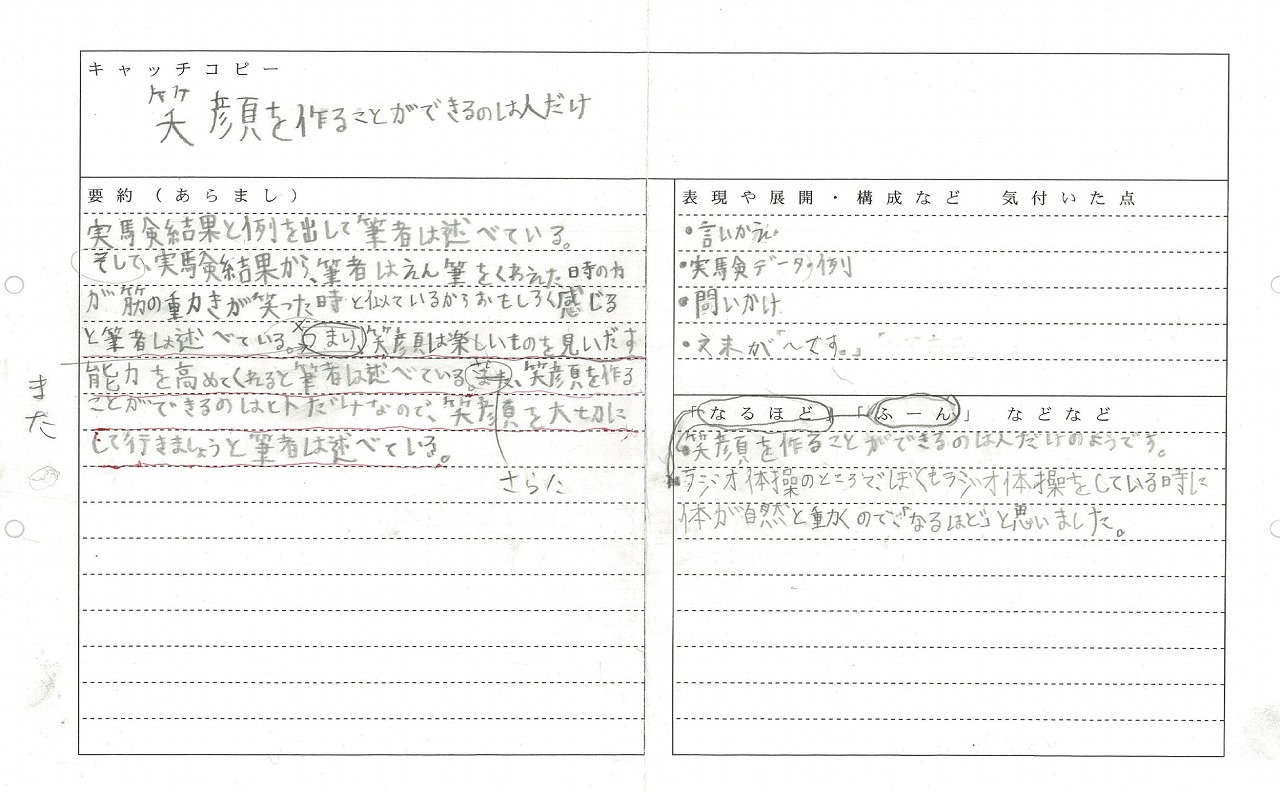 キャッチコピー
笑顔を作ることができるのは人だけ
要約（あらまし）
実験結果と例を出して筆者は述べている。
そして、実験結果から、筆者はえん筆をくわえた時の方
が筋の動きが笑った時と似ているからおもしろく感じる
と筆者は述べている。つまり、笑顔は楽しいものを見いだす
能力を高めてくれると筆者は述べている。また、笑顔を作る
ことができるのはヒトだけなので、笑顔を大切に
して行きましょうと筆者は述べている。
また
さらに
表現や展開・構成など 気付いた点
・言いかえ
・実験データの例
・問いかけ
・文末が「～です。」
「なるほど」「ふーん」 などなど
笑顔を作ることができるのは人だけのようです。
ラジオ体操のところで、ぼくもラジオ体操をしている時に
体が自然と動くので「なるほど」と思いました。